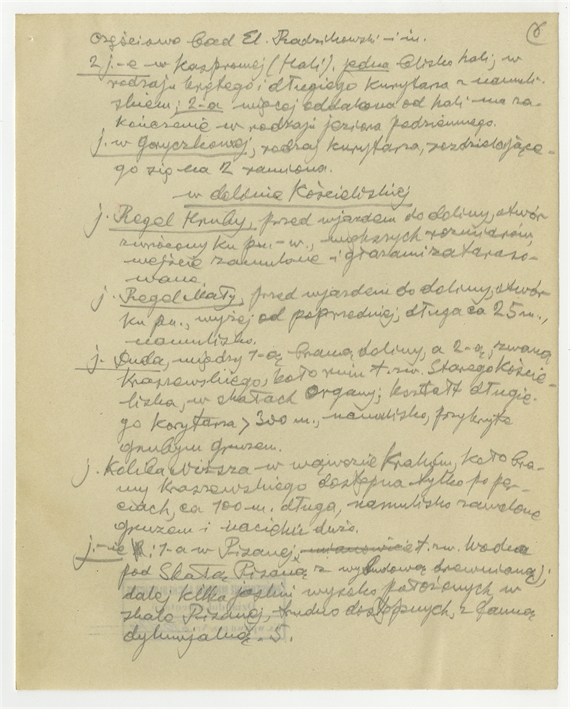 6
częściowo bad El. Radzikowski i in.
2 j.-e w Kasprowej (Hali), jedna blisko hali, w
rodzaju krętego i długiego kurytarza z namuli-
skiem; 2-a więcej oddalona od hali ma za-
kończenie w rodzaju jeziora podziemnego.
j. w Goryczkowej, rodzaj kurytarza, rozdzielające-
go się na 2 ramiona.
w dolinie Kościeliskiej
j. Regel Hruby, przed wjazdem do doliny, otwór
zwrócony ku pn.-w., większych rozmiarów,
wejście zamulone i głazami zataraso-
wane.
j. Regel Mały, przed wjazdem do doliny, otwór
ku pn., wyżej od poprzedniej, długa ca 25 m.,
namulisko.
j. Duda, między 1-ą bramą doliny, a 2-ą, zwaną
Kraszewskiego, koło ruin t. zw. Starego Koście-
liska, w skałach Organy; kształt długie-
go korytarza > 300 m., namulisko, przykryte
grubym gruzem.
j. Kalilawiższa w wąwozie Kraków, koło bra-
my Kraszewskiego dostępna tylko po pę-
ciach, ca 100 m. długa, namulisko zawalone
gruzem i nacieków dużo.
j.-ie : 1-a w Pisanej, mianowicie t. zw. Wodna
pod Skałą Pisaną z wybitową drewnianą);
dalej kilka jaskiń wysoko położonych w
skale Pisanej, trudno dostępnych, z fauną
dyluwjalną. S.